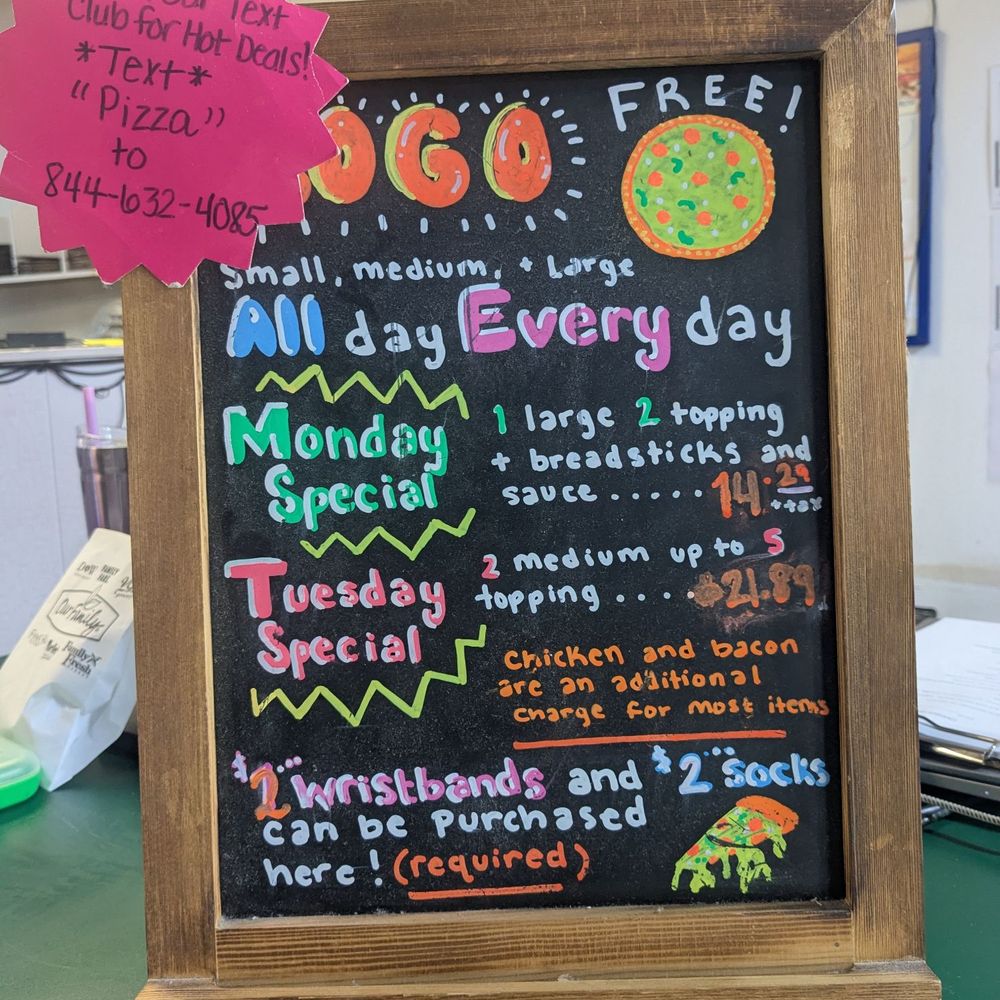 Text
Club for Hot Deals!
*Text*
"Pizza"
to
844-632-4085
OGO
FREE!
Small, medium, + Large
All day Every day
Monday
Special
1 large 2 topping
+ breadsticks and
sauce ..... 14.29
+tax
Tuesday
Special
2 medium up to 5
topping .... $21.89
Chicken and bacon
are an additional
charge for most items
$2 wristbands and $2 socks
can be purchased
here! (required)
Our Family